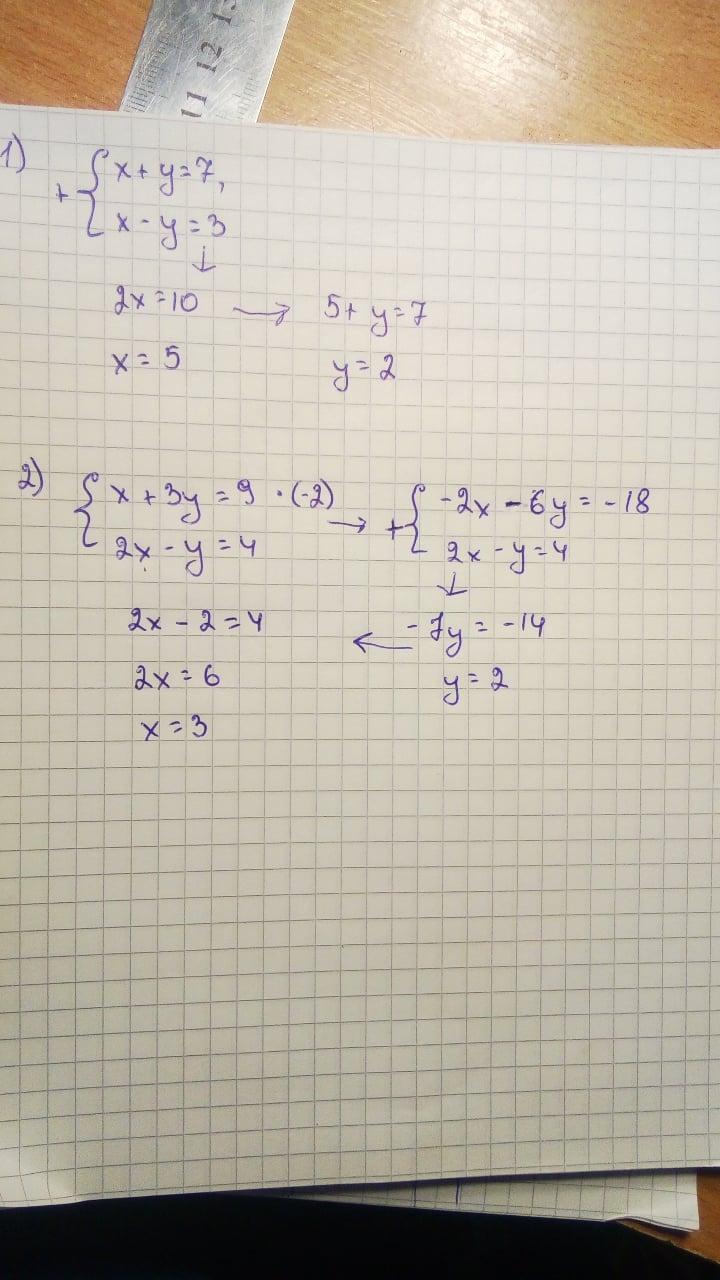 11 12 1
1)
+ { x + y = 7,
x - y = 3
↓
2x = 10 → 5 + y = 7
x = 5 y = 2
2) { x + 3y = 9 · (-2) → + { -2x - 6y = -18
2x - y = 4 2x - y = 4
↓
2x - 2 = 4 ← -7y = -14
2x = 6 y = 2
x = 3